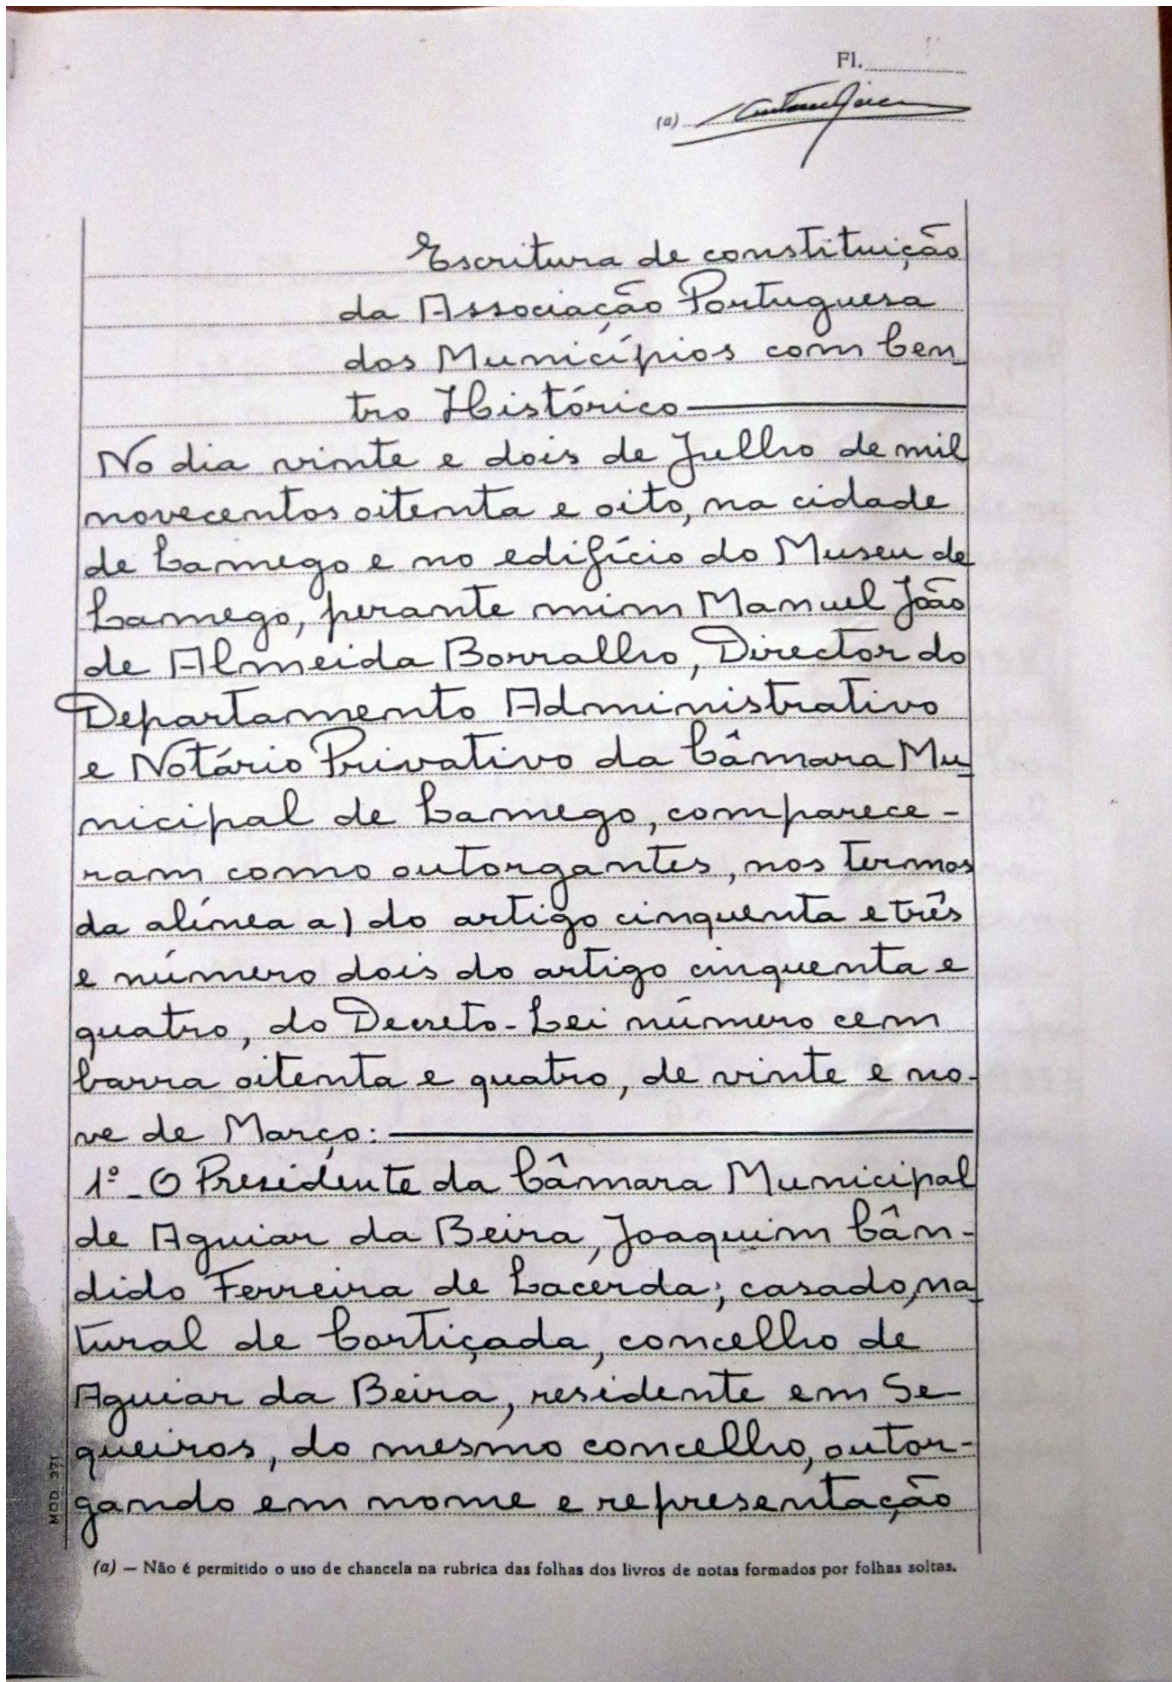 Fl.
(a)
Escritura de constituição
da Associação Portuguesa
dos Municípios com Cen-
tro Histórico
No dia vinte e dois de Julho de mil
novecentos oitenta e oito, na cidade
de Lamego e no edifício do Museu de
Lamego, perante mim Manuel João
de Almeida Borralho, Director do
Departamento Administrativo
e Notário Privativo da Câmara Mu-
nicipal de Lamego, comparece-
ram como outorgantes, nos termos
da alínea a) do artigo cinquenta e três
e número dois do artigo cinquenta e
quatro, do Decreto-Lei número cem
barra oitenta e quatro, de vinte e no-
ve de Março:
1º - O Presidente da Câmara Municipal
de Aguiar da Beira, Joaquim Cân-
dido Ferreira de Lacerda; casado, na-
tural de Cortiçada, concelho de
Aguiar da Beira, residente em Se-
queiros, do mesmo concelho, outor-
gando em nome e representação
MOD. 371
(a) — Não é permitido o uso de chancela na rubrica das folhas dos livros de notas formados por folhas soltas.